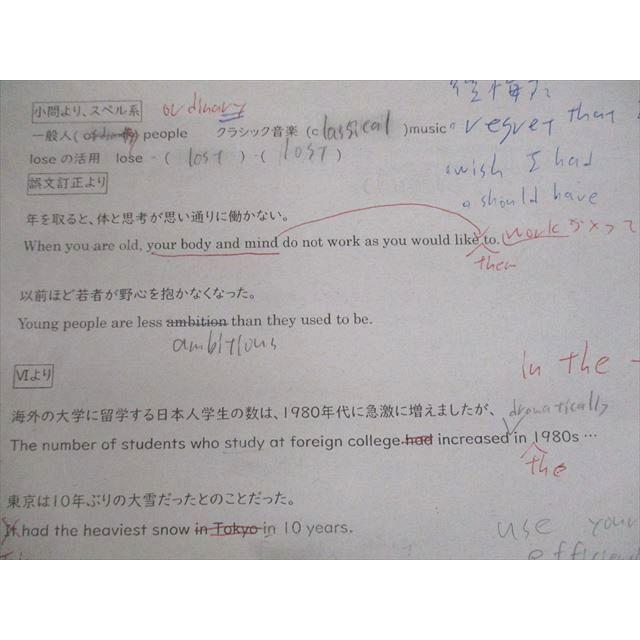 小問より、スペル系
ordinary
一般人( ordinary ) people クラシック音楽 (classical )music
loseの活用 lose - ( lost ) - ( lost )
regret that
wish I had
should have
誤文訂正より
年を取ると、体と思考が思い通りに働かない。
When you are old, your body and mind do not work as you would like to. work
them
以前ほど若者が野心を抱かなくなった。
Young people are less ambition than they used to be.
ambitious
in the
Ⅵより
海外の大学に留学する日本人学生の数は、1980年代に急激に増えましたが、 dramatically
The number of students who study at foreign college had increased in 1980s …
the
東京は10年ぶりの大雪だったとのことだった。
It had the heaviest snow in Tokyo in 10 years.
use your